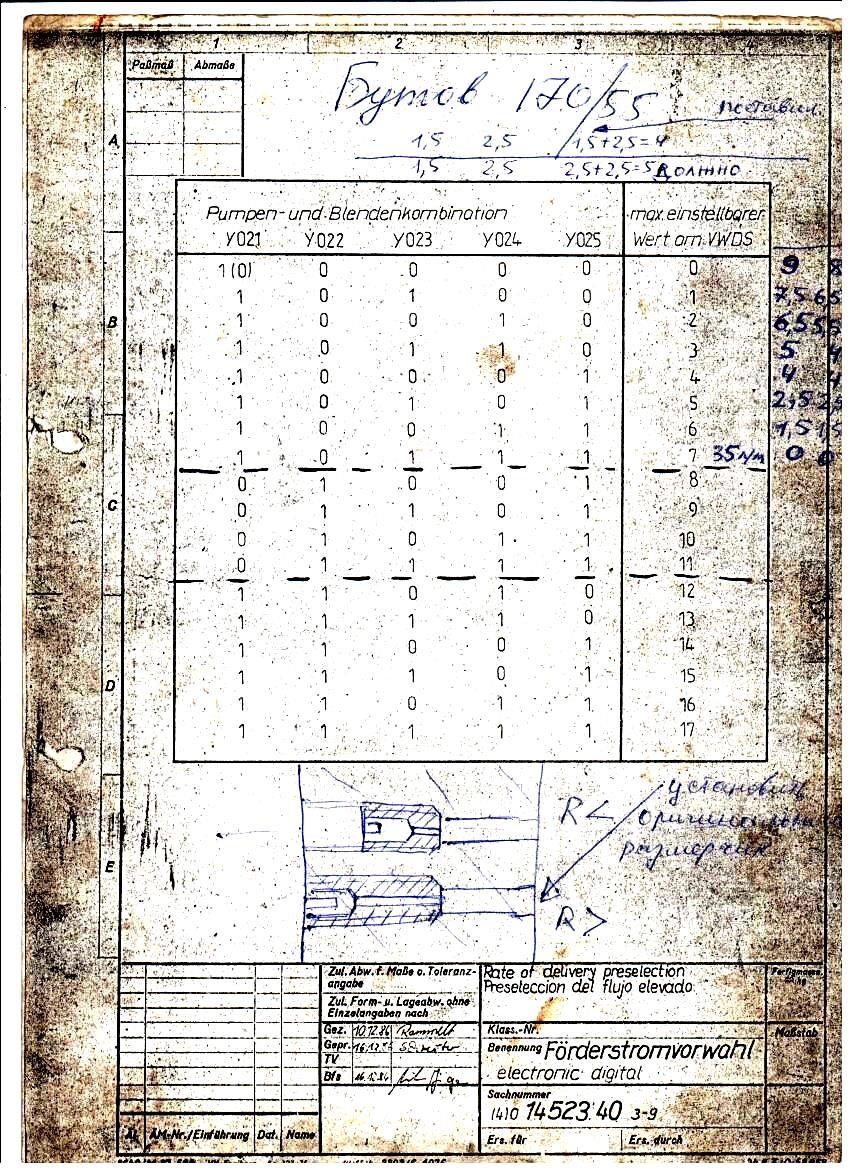 1 2 3 4
Paßmaß Abmaße
Бутов 170/55 поставил
1,5 2,5 1,5+2,5=4
1,5 2,5 2,5+2,5=5 должно
A
B
C
D
E
Pumpen- und Blendenkombination max. einstellbarer
Y021 Y022 Y023 Y024 Y025 Wert am VWDS
1(0) 0 0 0 0 0 9 8
1 0 1 0 0 1 7,5 6,5
1 0 0 1 0 2 6,5 5,5
1 0 1 1 0 3 5 4
1 0 0 0 1 4 4 4
1 0 1 0 1 5 2,5 2,5
1 0 0 1 1 6 1,5 1,5
1 0 1 1 1 7 35 л/м 0 0
0 1 0 0 1 8
0 1 1 0 1 9
0 1 0 1 1 10
0 1 1 1 1 11
1 1 0 1 0 12
1 1 1 1 0 13
1 1 0 0 1 14
1 1 1 0 1 15
1 1 0 1 1 16
1 1 1 1 1 17
R<
R>
установить
размерчик
Zul. Abw. f. Maße o. Toleranz-
angabe
Zul. Form- u. Lageabw. ohne
Einzelangaben nach
Gez. 10.12.86
Gepr.
TV
Bfs
Rate of delivery preselection
Preseleccion del flujo elevado
Klass.-Nr. Maßstab
Benennung Förderstromvorwahl
electronic digital
Sachnummer
(4)0 14523.40 3-9
Ers. für Ers. durch
ÄM-Nr./Einführung Dat. Name